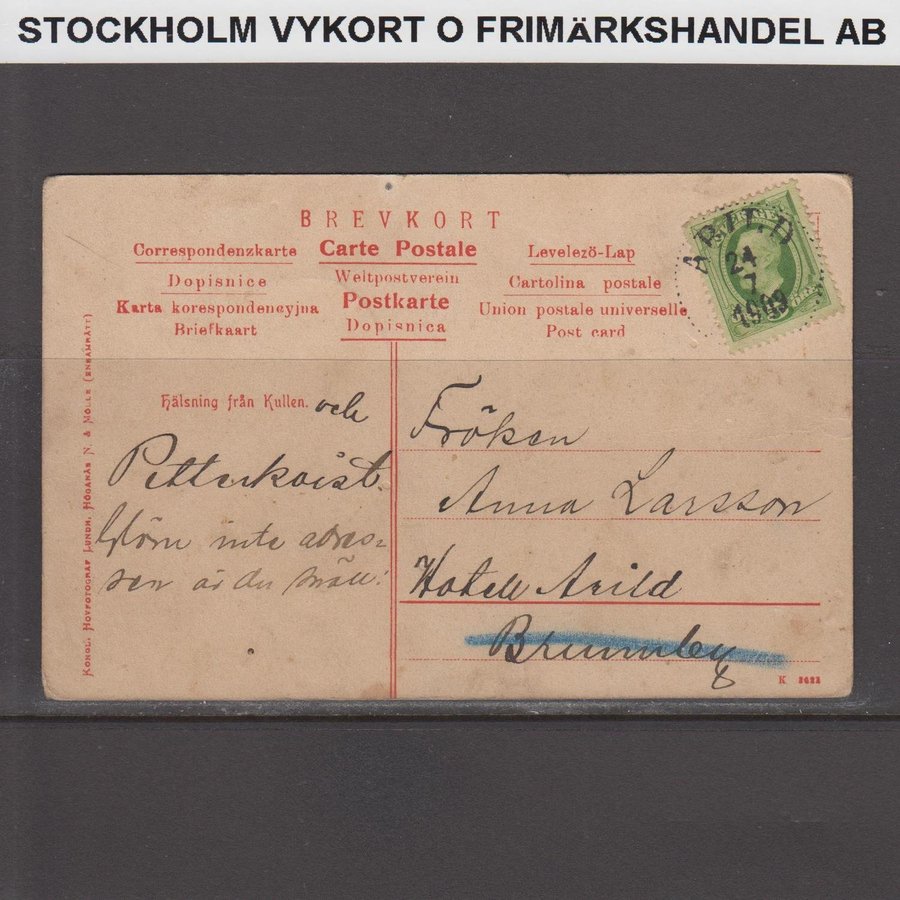 STOCKHOLM VYKORT O FRIMÄRKSHANDEL AB
BREVKORT
Correspondenzkarte Carte Postale Levelezö-Lap
Dopisnice Weltpostverein Cartolina postale
Karta korespondencyjna Postkarte Union postale universelle
Briefkaart Dopisnica Post card
ARILD
24
7
1903
Hälsning från Kullen. och
Petterkvist.
Glöm inte adres-
sen är du snäll!
Fröken
Anna Larsson
Hotell Arild
Brunnby
KONGL. HOVFOTOGRAF LUNDH, HÖGANÄS N. & MÖLLE (ENSAMRÄTT)
K 3422